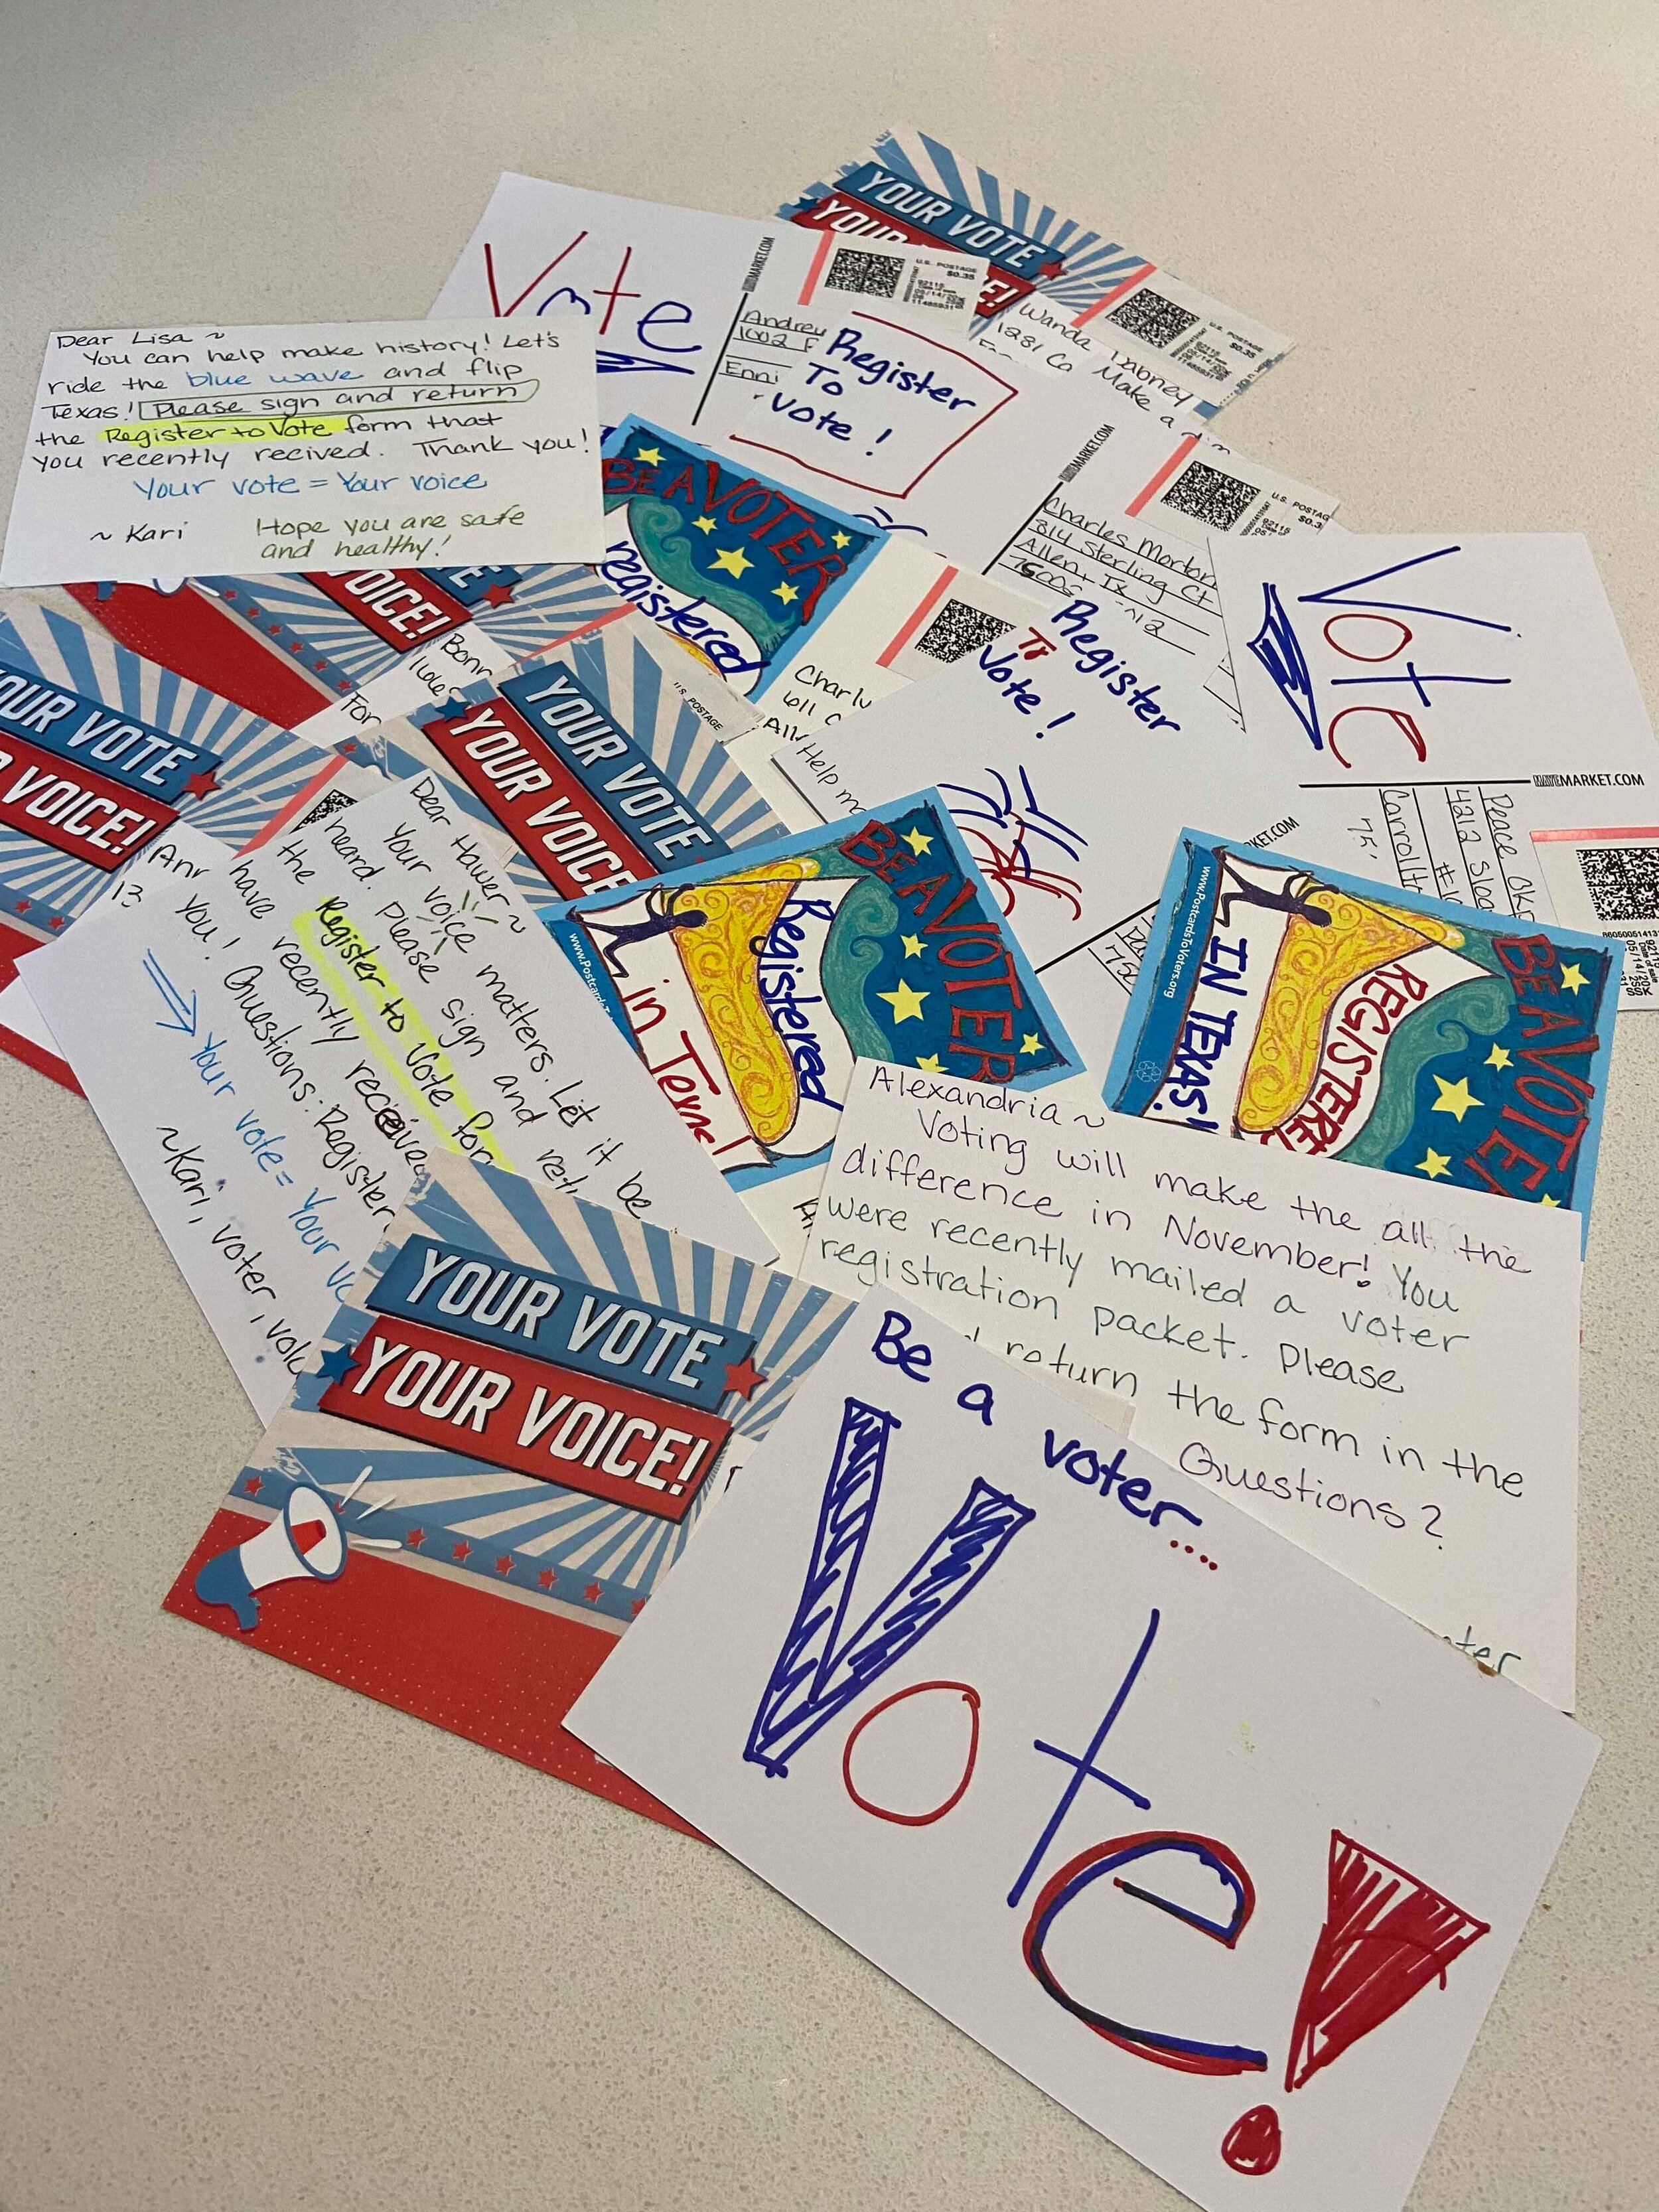 YOUR VOTE
YOUR
E!
Vote
MARKET.COM
U.S. POSTAGE
$0.35
Andrey
1002
Enni
Register
To
Vote!
Wanda Dabney
1281 Co
Make a
U.S. POSTAGE
$0.35
Dear Lisa ~
You can help make history! Let's
ride the blue wave and flip
Texas! Please sign and return
the Register to Vote form that
you recently recived. Thank you!
Your vote = Your voice
~ Kari
Hope you are safe
and healthy!
BE A VOTER
registered
MARKET.COM
U.S. POSTAG
$0.3
92115
Charles Morton
314 Sterling Ct
Allen, Tx
Register
To
Vote!
Vote
MARKET.COM
Peace
4212
Carrollt
OICE!
Bonn
For
U.S. POSTAGE
Charly
611 C
Help m
OUR VOTE
VOICE!
13
YOUR VOTE
YOUR VOICE
Dear Hawer ~
Your voice matters. Let it be
heard. Please sign and ret
the Register to Vote for
have recently receive
you! Questions: Register
Your vote = Your vo
~Kari, voter, volu
BE A VOTER
Registered
in Texas!
BE A VOTE
REGISTERE
IN TEXAS!
www.PostcardsToVoters.org
Alexandria ~
Voting will make the all the
difference in November! You
were recently mailed a voter
registration packet. Please
return the form in the
Questions?
YOUR VOTE
YOUR VOICE!
Be a voter....
Vote!